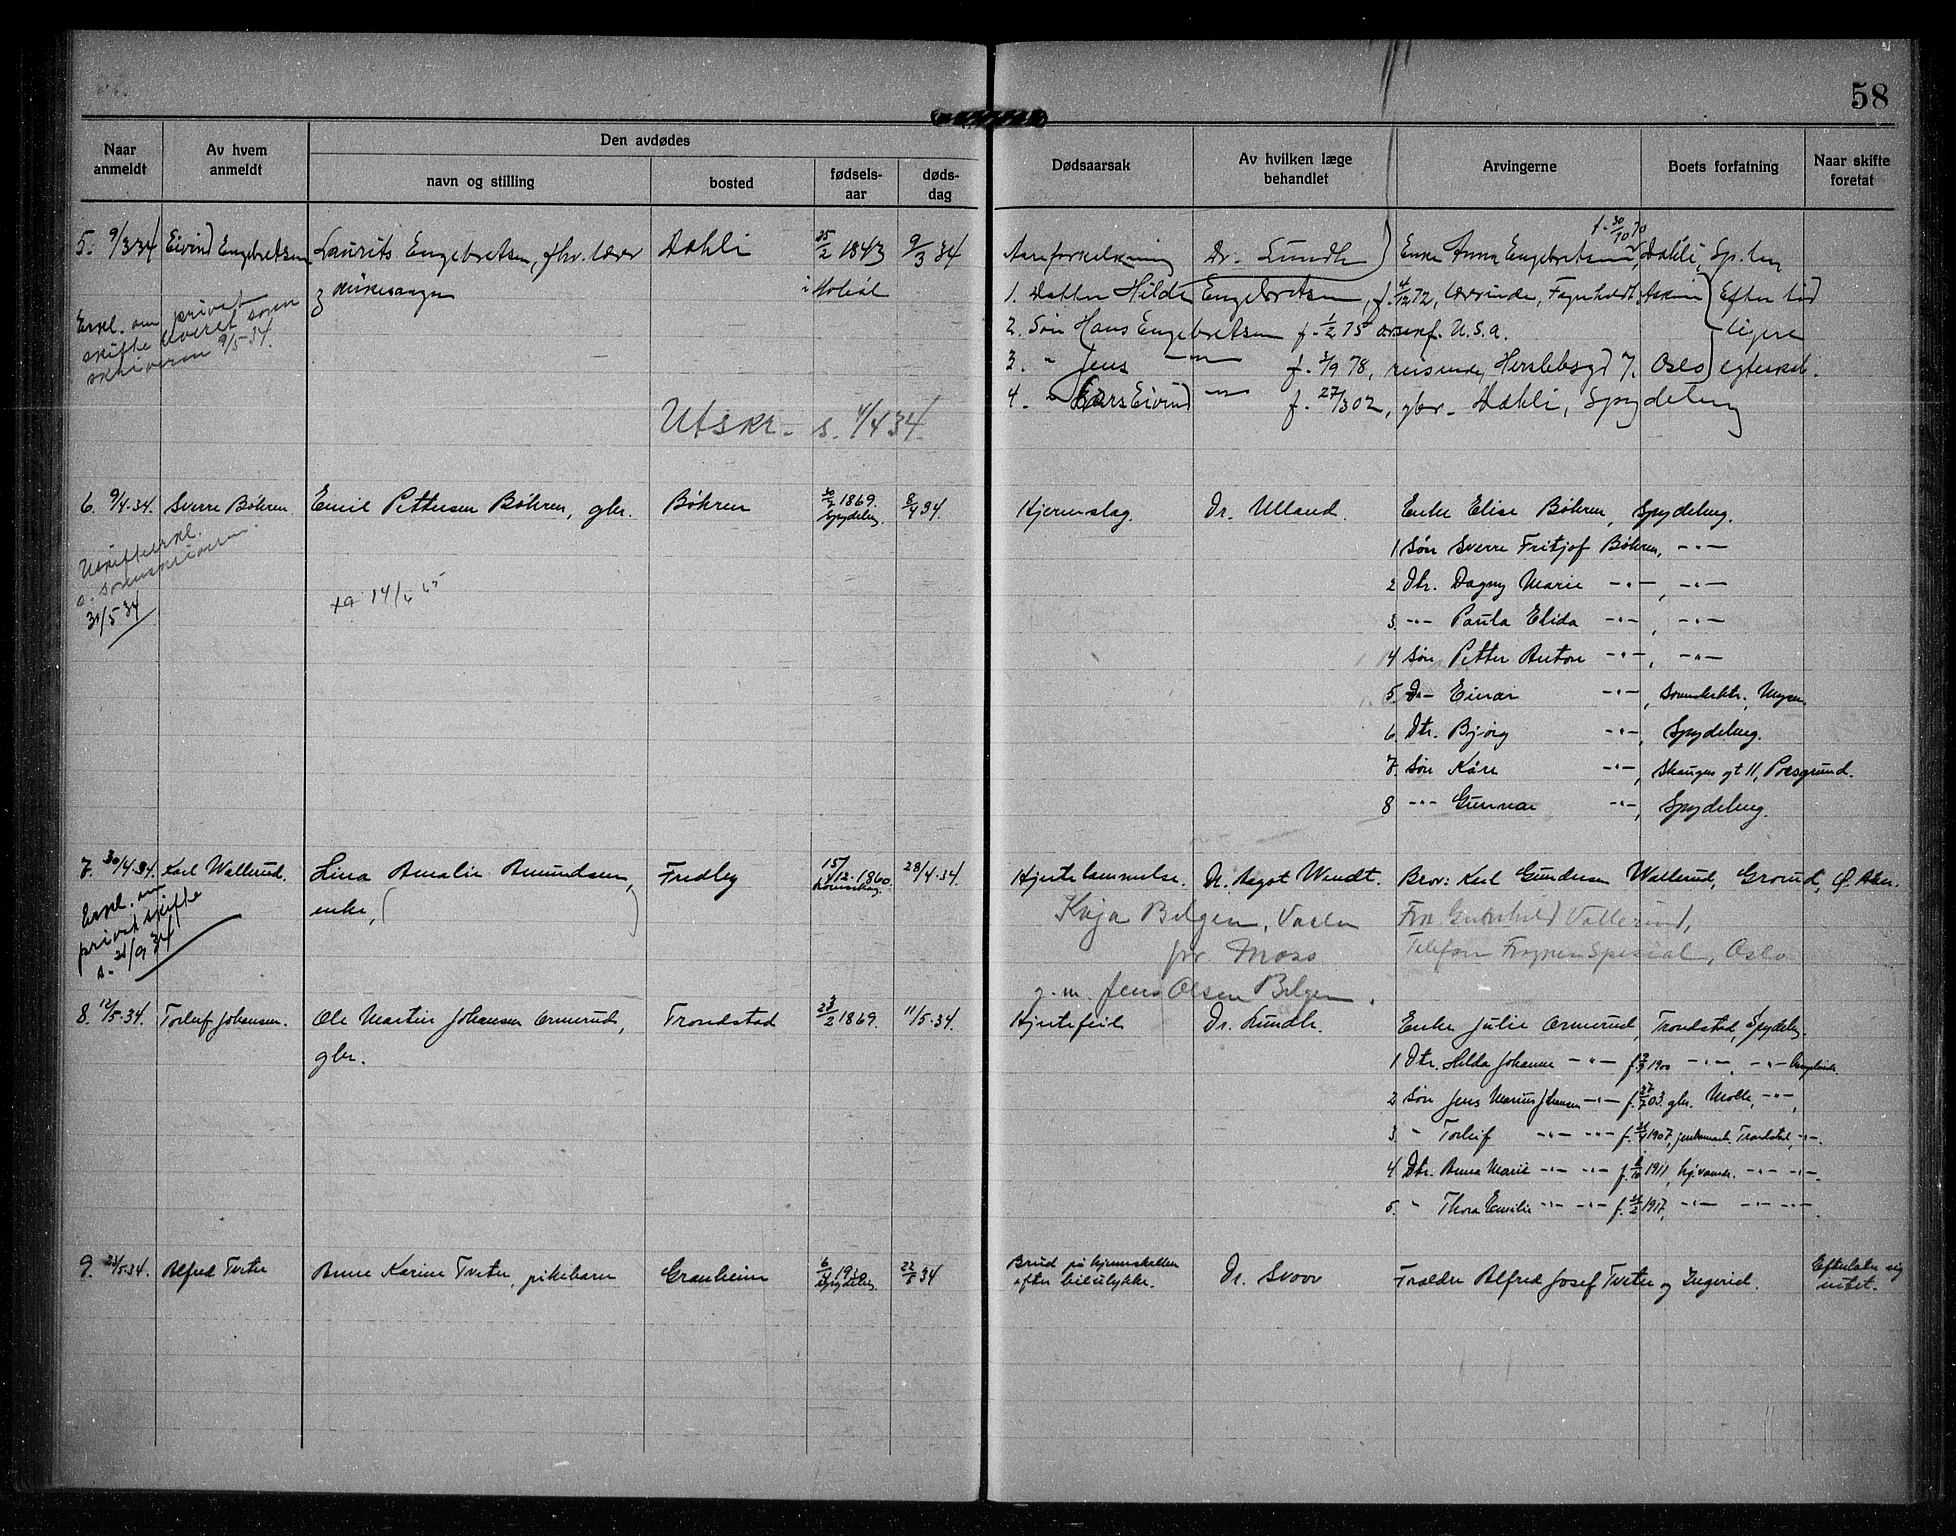 58
Naar anmeldt
Av hvem anmeldt
Den avdødes
navn og stilling
bosted
fødsels-aar
døds-dag
Dødsaarsak
Av hvilken læge behandlet
Arvingerne
Boets forfatning
Naar skifte foretat
5. 9/3 34 Eivind Engebretsen Laurits Engebretsen, fhv. lærer Dæhli 25/2 1843 9/3 34 Aareforkalkning Dr. Lundh Enke Anna Engebretsen f. 30/10 70 Dæhli,
kirkesanger i Hobøl 1. Datter Hilda Engebretsen, f. 4/12 72, lærerinde, Askim Efter tid
Erkl. om privat
skifte levert soren
skriveren 9/5-34.
2. Søn Hans Engebretsen f. 1/2 75 U.S.a. ligere
3. " Jens -"- f. 3/9 78, reisende, Herslebsgt 7. Oslo egteskab.
4. " Lars Eivind -"- f. 27/3 02, gbr. Dæhli, Spydeberg
Utskr. s. 4/4 34.
6. 9/4-34. Sverre Bøhren. Emil Pettersen Bøhren, gbr. Bøhren 30/7 1869. Spydeberg. 8/4 34 Hjerneslag. Dr. Ulland. Enke Elise Bøhren, Spydeberg.
Uskifteerkl.
s. sorenskriveren
31/5 34
14/6 45
1 Søn Sverre Fritjof Bøhren, -"-
2 Dtr. Dagny Marie -"-, -"-
3. -"- Paula Elida -"-, -"-
4 Søn Petter Anton -"-, -"-
5. Einar -"-, Mysen
6. Dtr. Bjørg -"-, Spydeberg.
7. Søn Kåre -"-, Skauges gt 11, Porsgrund.
8 -"- Gunnar -"-, Spydeberg.
7. 30/4-34. Karl Wallerud. Lina Amalie Amundsen, Fredly 15/12-1860. 28/4-34. Hjertelammelse. Dr. Aagot Wendt. Bror: Karl Gundersen Wallerud, Grorud, Ø. Aker.
enke, ( )
Erkl. om
privat skifte
s. 21/9 34
Kaja Belgen, Vaaler Fra Gunhild Vallerund,
pr. Moss Telefon Frogner Spesial, Oslo
g.m. Jens Olsen Belgen.
8. 12/5-34. Torleif Johansen. Ole Martin Johansen Ormerud, Trondstad 23/2 1869. 11/5-34. Hjertefeil Dr. Lundh. Enke Julie Ormerud, Trondstad, Spydeberg.
gbr.
1 Dtr. Hilda Johanne -"- 1900 -"-, -"-
2 Søn Jens Marius Johansen -"- f. 27/7 03. gbr. Molle, -"-,
3. " Torleif -"- -"- 1907, Trondstad, -"-.
4 Dtr. Anna Marie -"- -"- 1911, -"- -"-.
5. " Thora Emilie -"- -"- 1917, -"- -"- -"-.
9. 23/5-34. Alfred Tveter Anne Karine Tveter, pikebarn Granheim Spydeberg. 22/5 34 Brud på hjerneskallen Dr. Svoor Forældre Alfred Josef Tveter og Ingerid. Efterlater sig
efter bilulykke. intet.